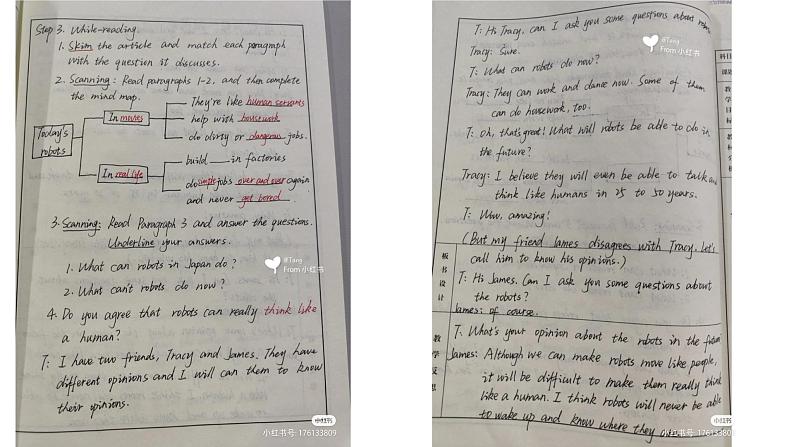 Step 3. While-reading.
1. Skim the article and match each paragraph
with the question it discusses.
2. Scanning: Read paragraphs 1-2, and then complete
the mind map.
Today's
robots
In movies
They're like human servants
help with housework
do dirty or dangerous jobs.
In real life
build ___ in factories
do simple jobs over and over again
and never get bored.
3. Scanning: Read Paragraph 3 and answer the questions.
Underline your answers.
1. What can robots in Japan do?
2. What can't robots do now?
4. Do you agree that robots can really think like
a human?
T: I have two friends, Tracy and James. They have
different opinions and I will can them to know
their opinions.
@Tang
From 小红书
小红书
小红书号: 176133809
T: Hi Tracy, can I ask you some questions about
Tracy: Sure.
T: What can robots do now?
Tracy: They can work and dance now. Some of them
can do housework, too.
T: Oh, that's great! What will robots be able to do in
the future?
Tracy: I believe they will even be able to talk and
think like humans in 25 to 50 years.
T: Wow, amazing!
(But my friend James disagrees with Tracy. Let's
call him to know his opinions.)
T: Hi James. Can I ask you some questions about
the robots?
James: Of course.
T: What's your opinion about the robots in the future
James: Although we can make robots move like people,
it will be difficult to make them really think
like a human. I think robots will never be able
to wake up and know where they
板书设计
教学反思
科目
课题
教学目标
@Tang
From 小红书
小红书
小红书号: 17613380